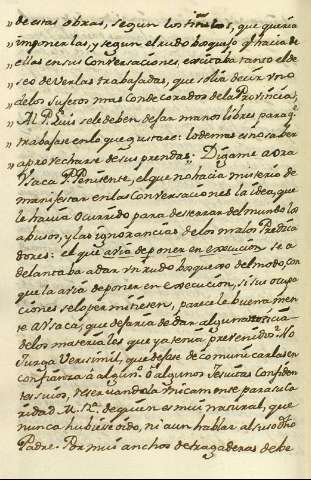 de estas obras, segun los titulos, que queria
" imponerlas, y segun el rudo bosquejo q̃ hacia de
" ellas en sus Conversaciones, excitaba tanto el de
" seo de verlas trabajadas, que solia decir uno
" de los sujetos mas Condecorados de la Provincia;
" Al P. Luis se le deben dejar manos libres para q̃
" trabaje en lo que gustare: lo demas es no saber
" aprovecharse de sus prendas: Digame aora
Vsaca P. Penitente, el que no hacia misterio de
manifestar en las Conversaciones la idea, que
le havia Ocurrido para desterrar del mundo los
abusos, y las ignorancias de los malos Predica
dores: el que avia de poner en execucion se a
delantaba a dar un rudo bosquexo del modo, con
que la avia de poner en execucion, si sus ocupa
ciones se lo permitiesen, parecele buenamen
te a Vsaca, que dejaria de dar alguna noticia
de los materiales que ya tenia prevenidos? No
Juzga Verisimil, que dejase de comunicarlas en
confianza á algun, ó algunos Jesuitas Confiden
tes suios, reservando la unicamente para su la
ridad M. R.ª de quien es mui natural, que
nunca hubiese oido, ni aun hablar al susodho
Padre. Por mui anchos de tragaderas debe